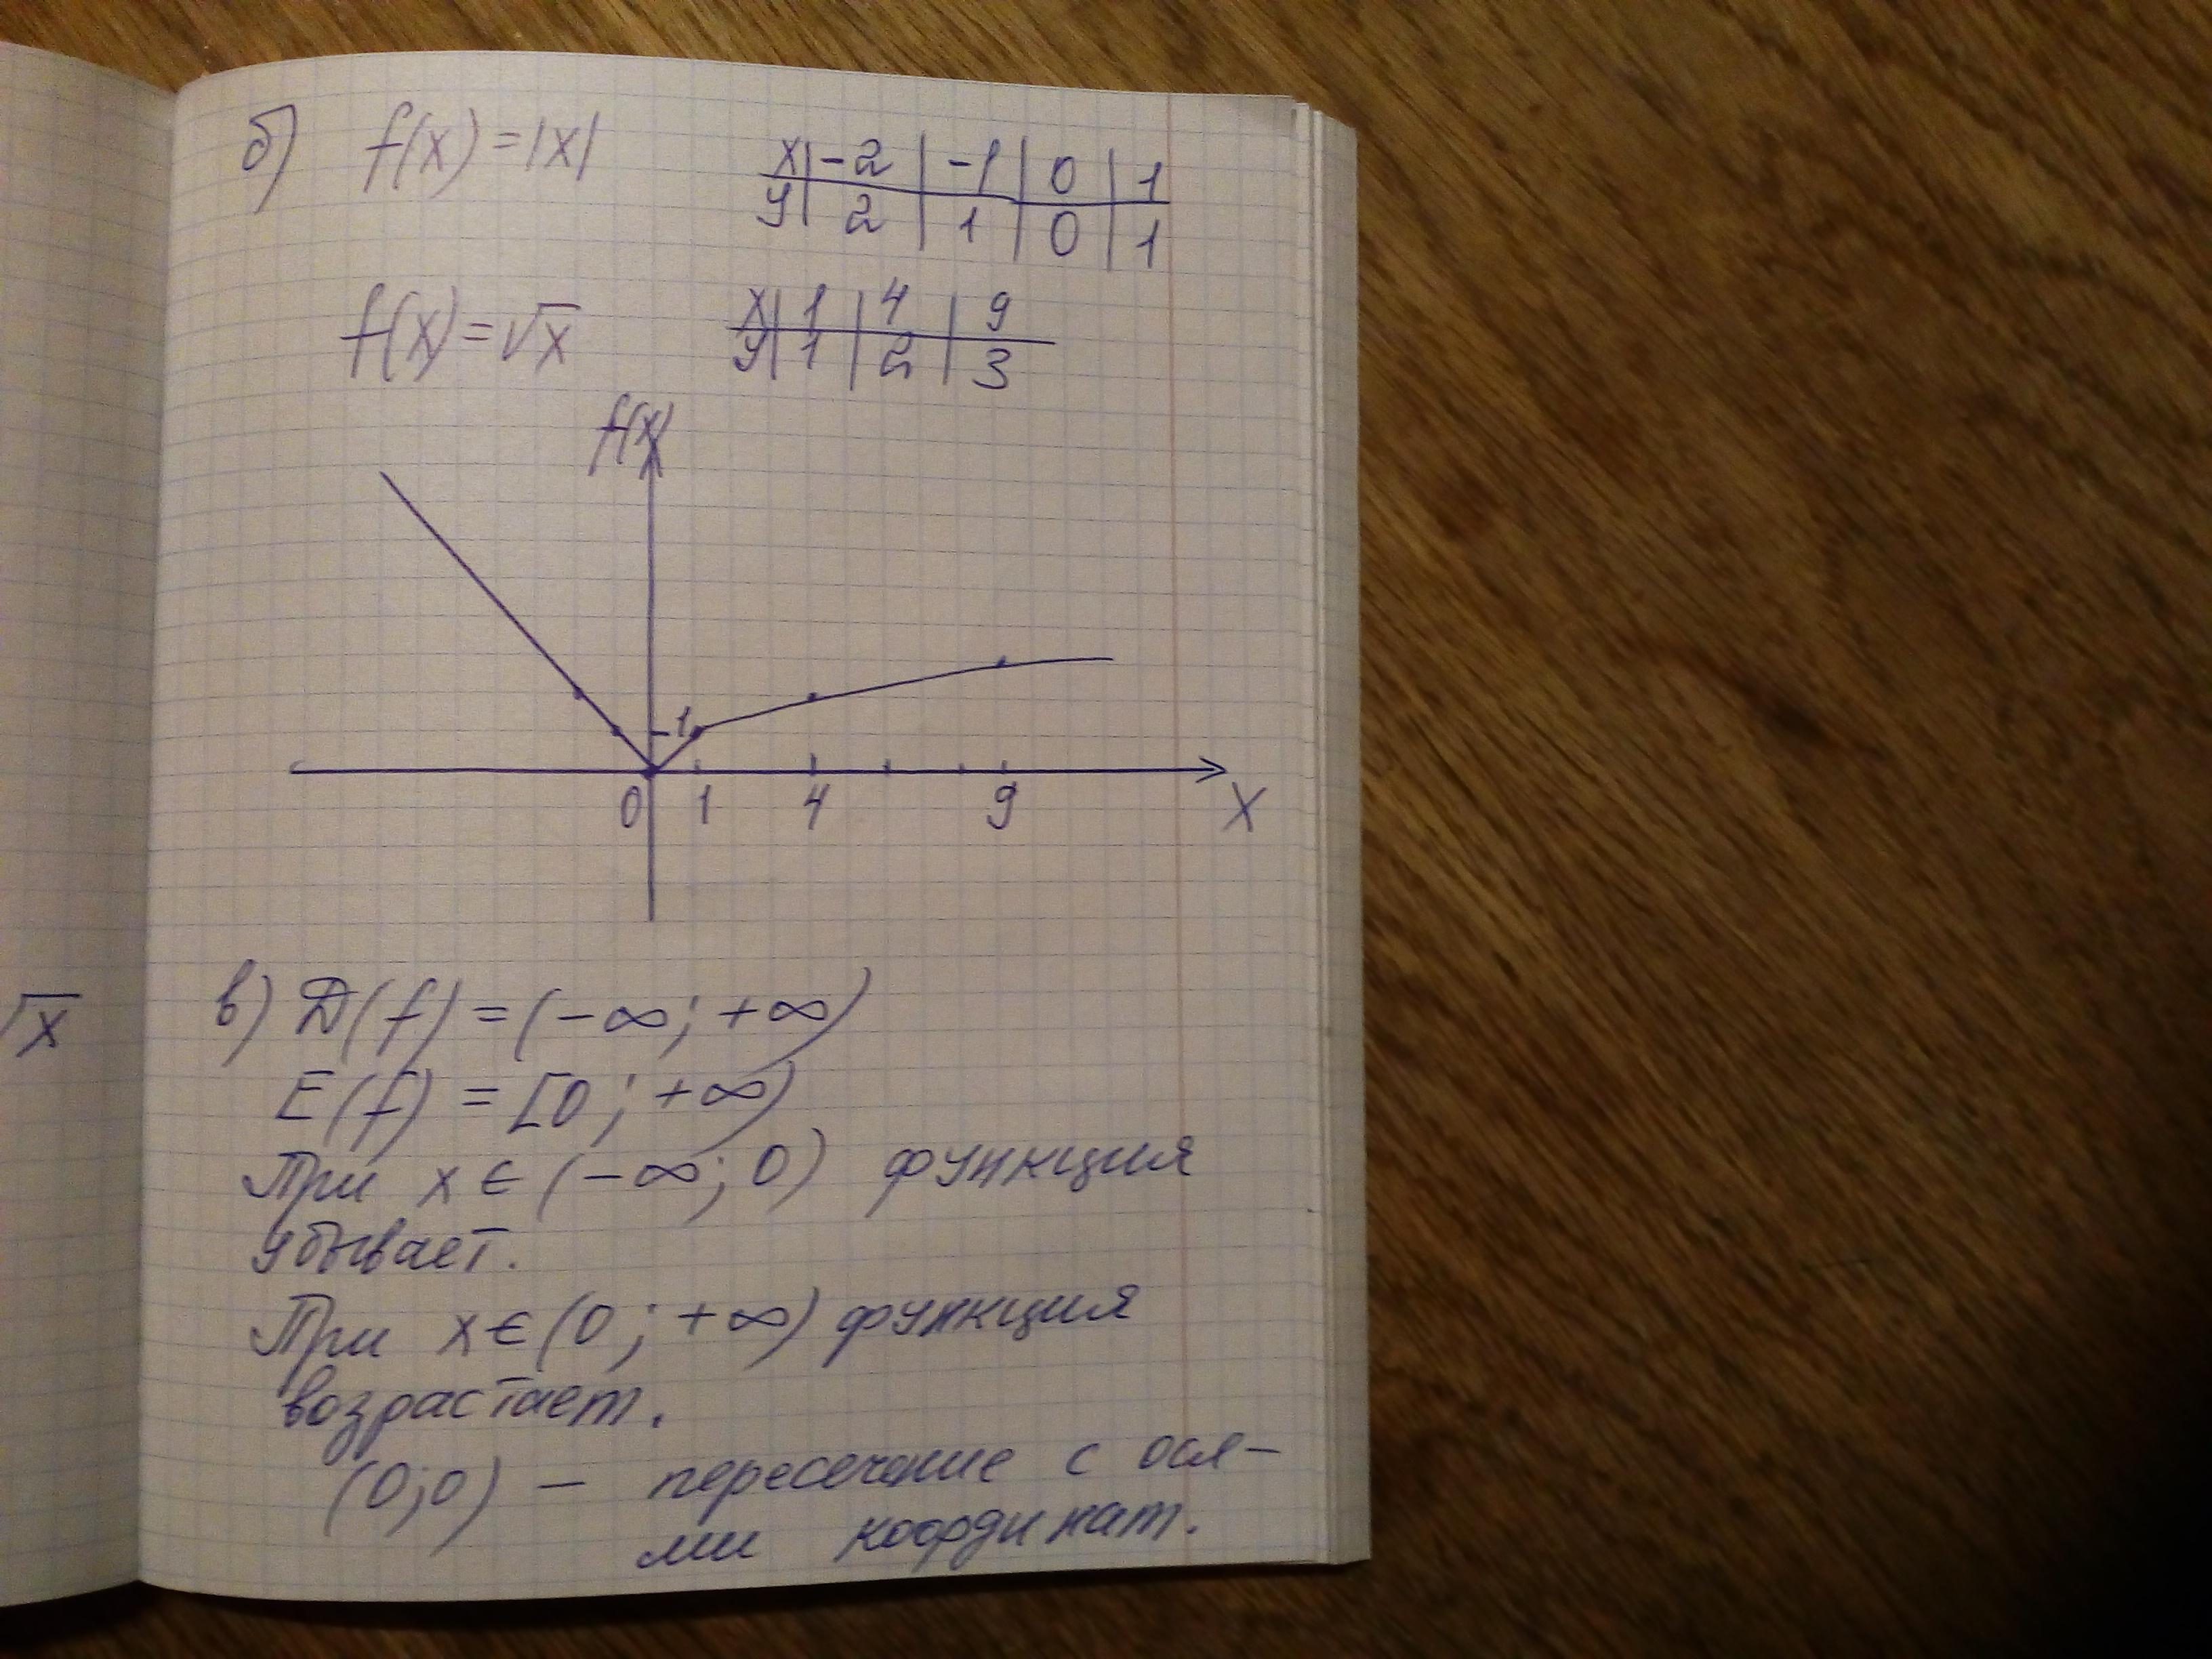 б) f(x) = |x|
x | -2 | -1 | 0 | 1
y | 2 | 1 | 0 | 1
f(x) = √x
x | 1 | 4 | 9
y | 1 | 2 | 3
f(x)
1
0 1 4 9 x
√x
в) D(f) = (-∞; +∞)
E(f) = [0; +∞)
При x ∈ (-∞; 0) функция
убывает.
При x ∈ (0; +∞) функция
возрастает.
(0;0) — пересечение с ося-
ми координат.